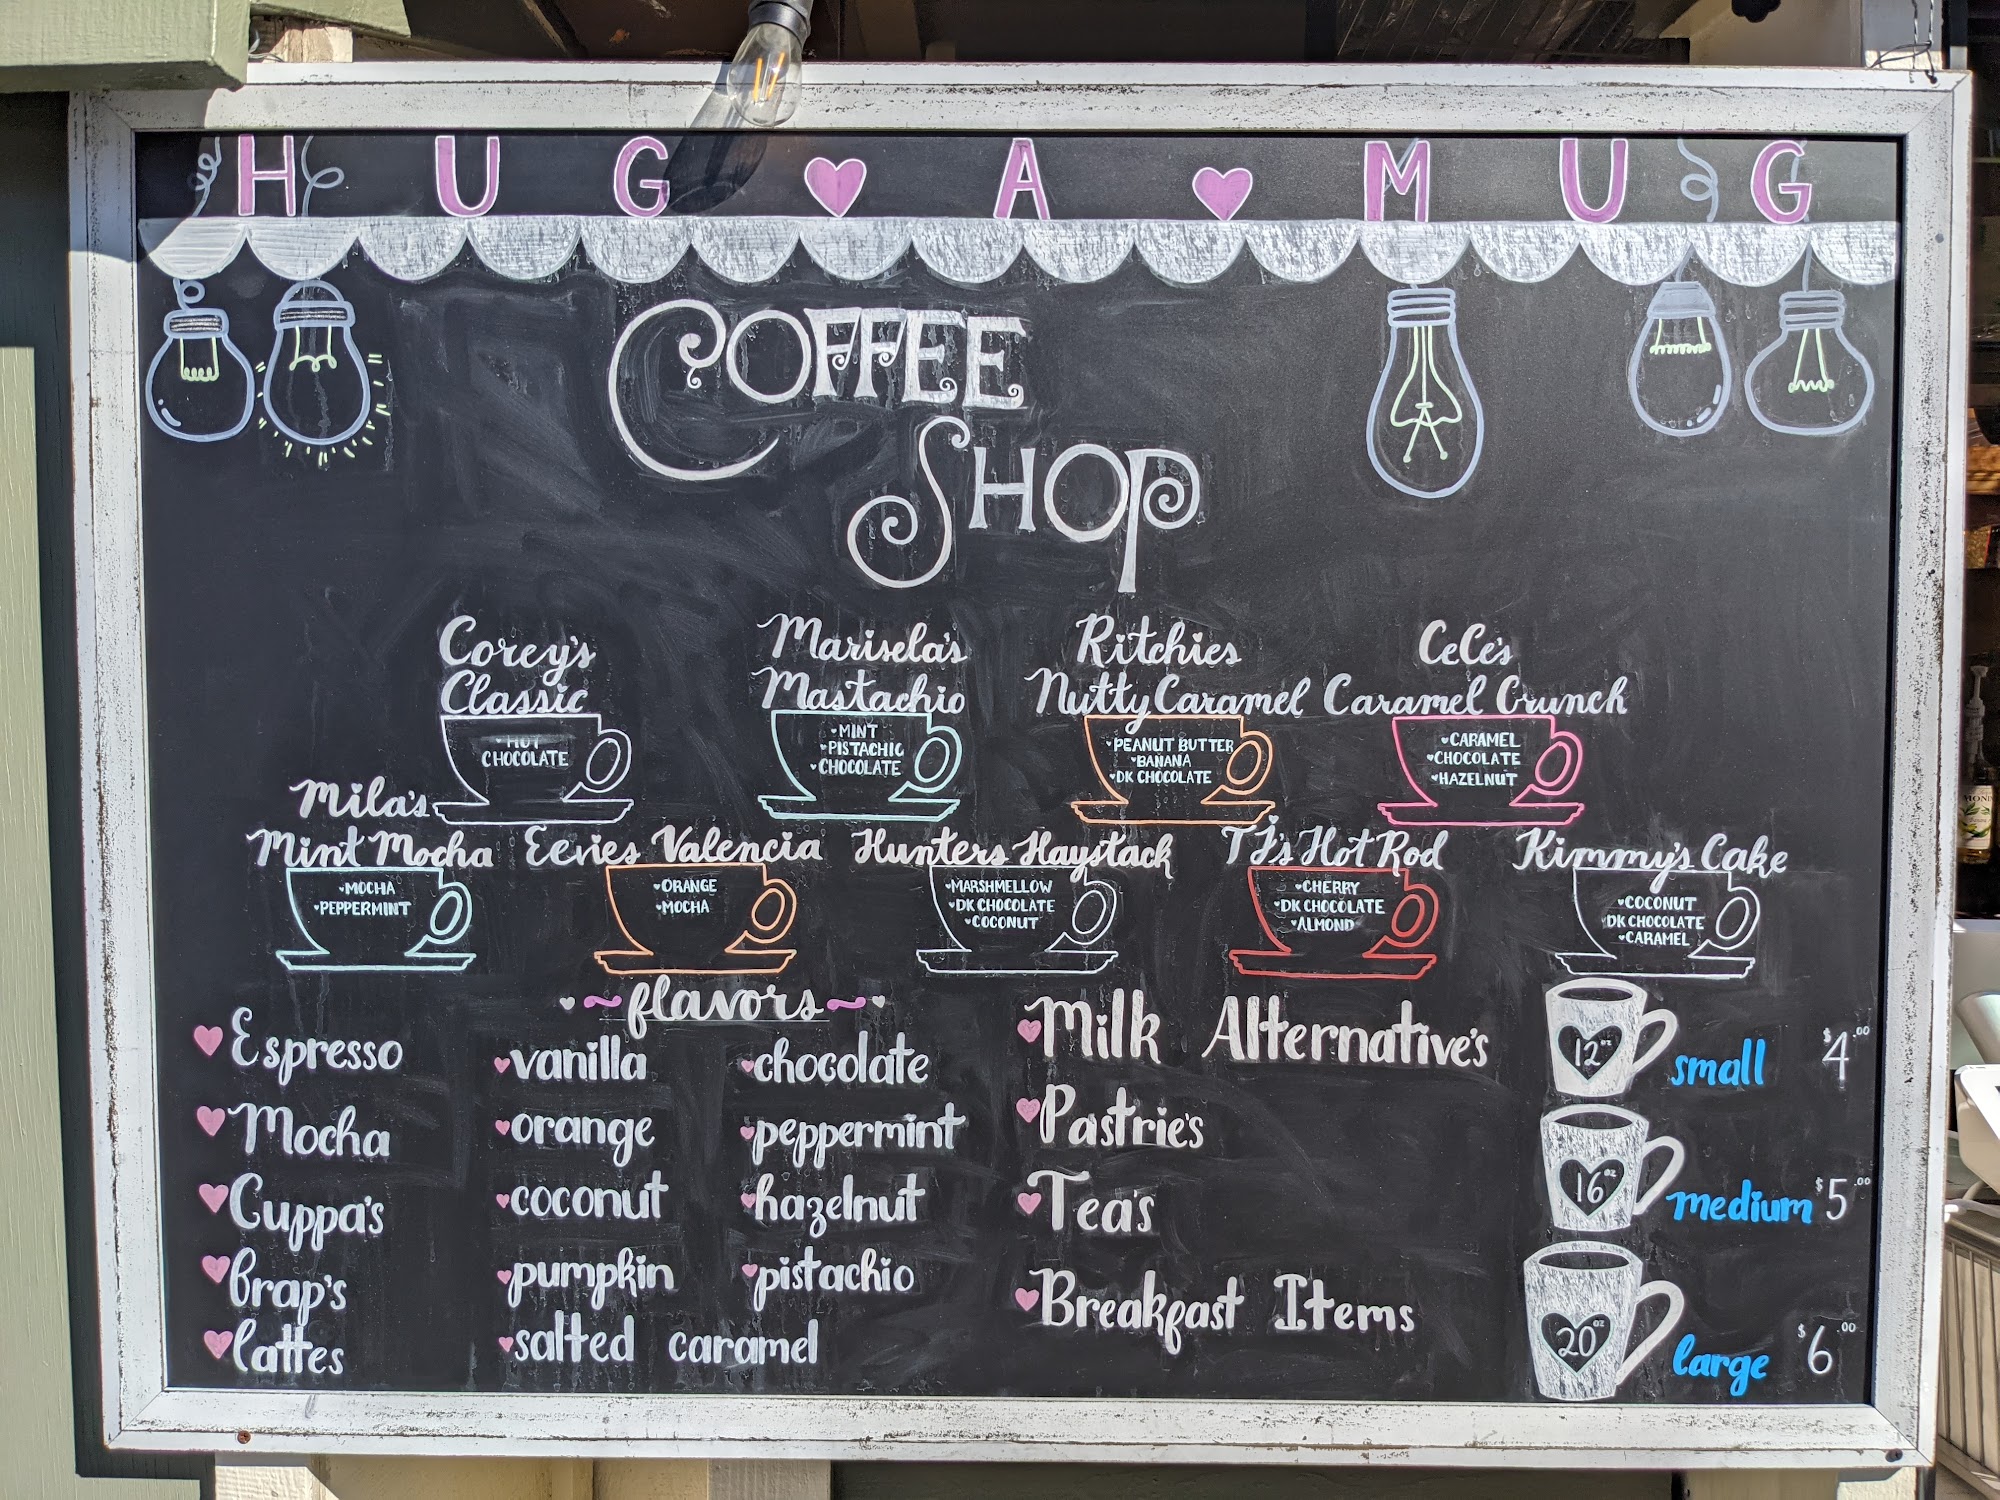 HUG ♥ A ♥ MUG
COFFEE
SHOP
Corey's
Classic
HOT
CHOCOLATE
Marisela's
Mastachio
MINT
PISTACHIO
CHOCOLATE
Ritchies
Nutty Caramel
PEANUT BUTTER
BANANA
DK CHOCOLATE
CeCe's
Caramel Crunch
CARAMEL
CHOCOLATE
HAZELNUT
Mila's
Mint Mocha
MOCHA
PEPPERMINT
Eevies Valencia
ORANGE
MOCHA
Hunters Haystack
MARSHMELLOW
DK CHOCOLATE
COCONUT
TJ's Hot Rod
CHERRY
DK CHOCOLATE
ALMOND
Kimmy's Cake
COCONUT
DK CHOCOLATE
CARAMEL
Espresso
Mocha
Cuppa's
frap's
lattes
~flavors~
vanilla
orange
coconut
pumpkin
salted caramel
chocolate
peppermint
hazelnut
pistachio
Milk Alternative's
Pastrie's
Tea's
Breakfast Items
12oz small $4.00
16oz medium $5.00
20oz large $6.00
MONIN